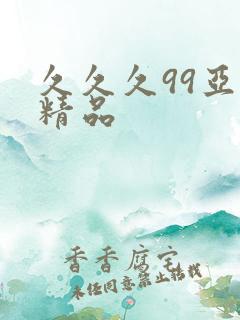 久久久99亚
精品
香香腐宅
未经同意禁止转载